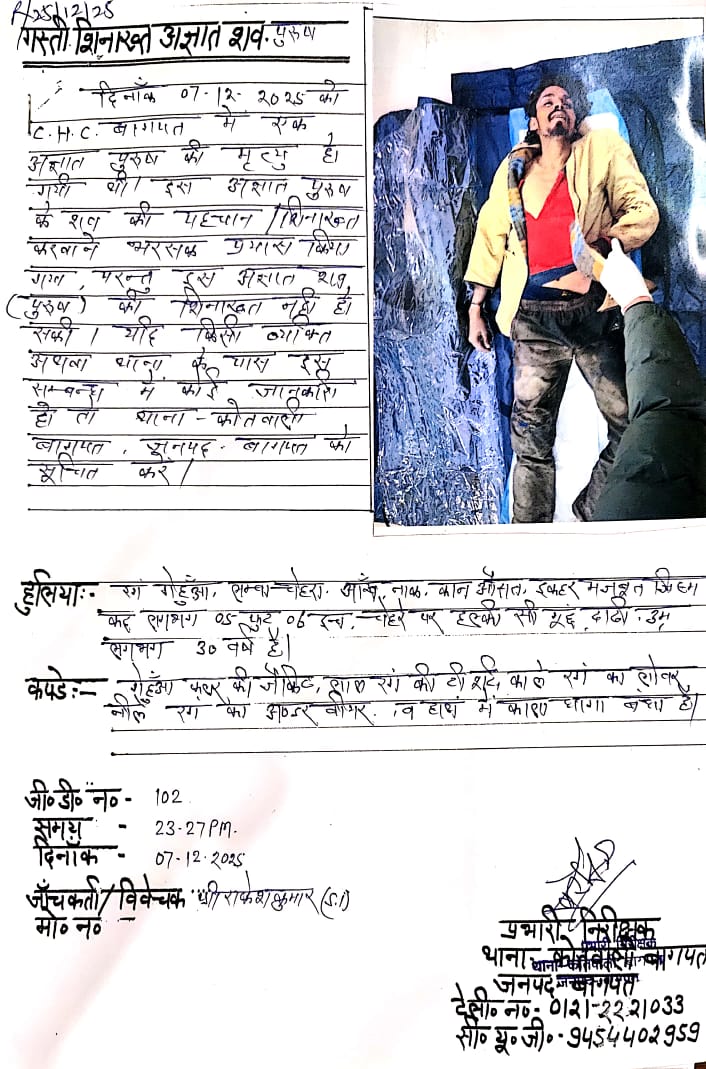 P/25/12/25
गस्ती शिनाख्त अज्ञात शव पुरुष
दिनाँक 07-12-2025 को
C.H.C. बागपत में एक
अज्ञात पुरुष की मृत्यु हो
गयी थी। इस अज्ञात पुरुष
के शव की पहचान / शिनाख्त
करवाने भरसक प्रयास किया
गया, परन्तु इस अज्ञात शव
(पुरुष) की शिनाख्त नही हो
सकी। यदि किसी व्यक्ति
अथवा थाना के पास इस
सम्बन्ध में कोई जानकारी
हो तो थाना - कोतवाली
बागपत, जनपद - बागपत को
सूचित करें।
हुलियाः- रंग गेहुँआ, लम्बा चेहरा, आँख, नाक, कान औसत, इकहरा मजबूत जिस्म
कद लगभग 05 फुट 06 इन्च, चेहरे पर हल्की सी मूछं, दाढी, उम्र
लगभग 30 वर्ष है।
कपडेः- गेहुँआ कलर की जैकिट, लाल रंग की टी शर्ट, काले रंग का लोवर
नीले रंग का अण्डर वीयर, व हाथ में काला धागा बंधा है।
जी०डी० न०- 102
समय - 23-27PM.
दिनाँक - 07-12-2025
जाँचकर्ता/विवेचक श्री राकेश कुमार (S.I)
मो० न० -
प्रभारी निरीक्षक
प्रभारी निरीक्षक
थाना- कोतवाली बागपत
थाना कोतवाली बागपत
जनपद बागपत
टेली० न०- 0121-2221033
सी० यू० जी०-9454402959